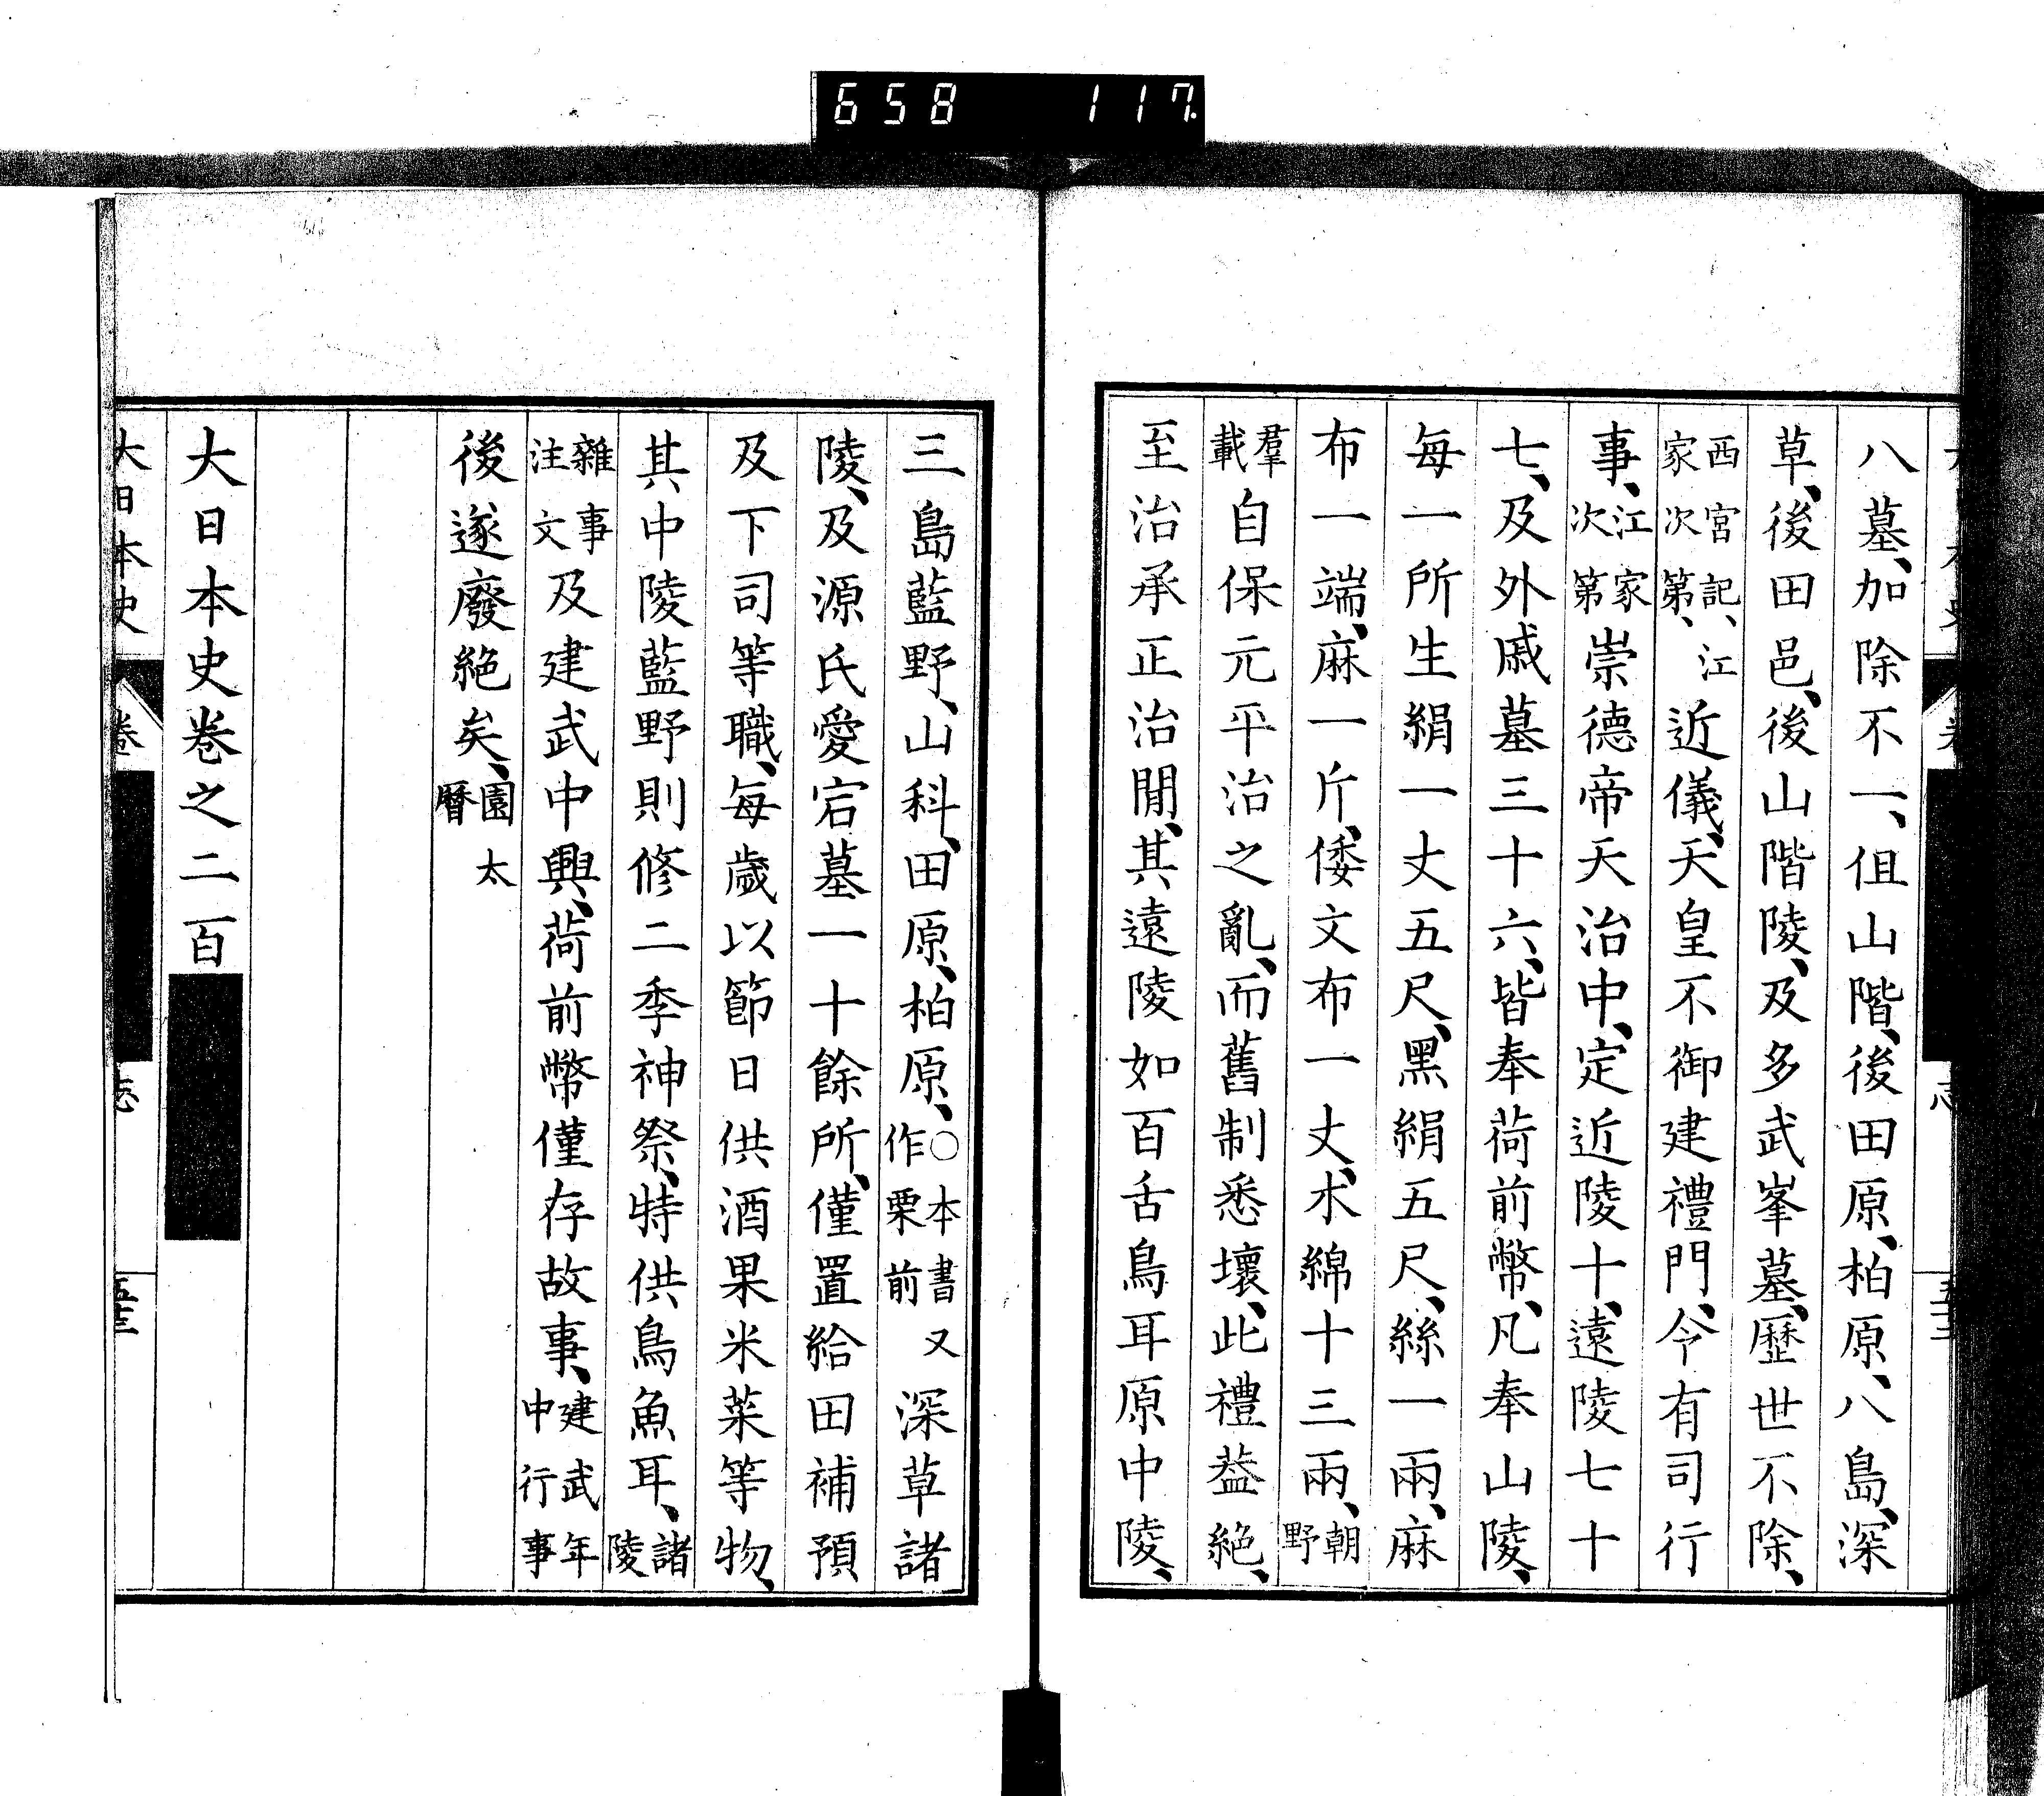 658 117
八墓、加除不一、但山階、後田原、柏原、八島、深
草、後田邑、後山階陵、及多武峯墓、歷世不除、
西宮記、江家次第、近儀、天皇不御建禮門、令有司行
事、江家次第崇德帝天治中、定近陵十、遠陵七十
七、及外戚墓三十六、皆奉荷前幣、凡奉山陵、
每一所生絹一丈五尺、黑絹五尺、絲一兩、麻
布一端、麻一斤、倭文布一丈、木綿十三兩、朝野
羣載自保元平治之亂、而舊制悉壞、此禮益絕、
至治承正治閒、其遠陵如百舌鳥耳原中陵、
三島藍野、山科、田原、柏原、○本書又作栗前深草諸
陵、及源氏愛宕墓一十餘所、僅置給田補預
及下司等職、每歲以節日供酒果米菜等物、
其中陵藍野則修二季神祭、特供鳥魚耳、諸陵
雜事注文及建武中興、荷前幣僅存故事、建武年中行事
後遂廢絕矣、園太曆
大日本史卷之二百
大日本史 卷 志 五十三